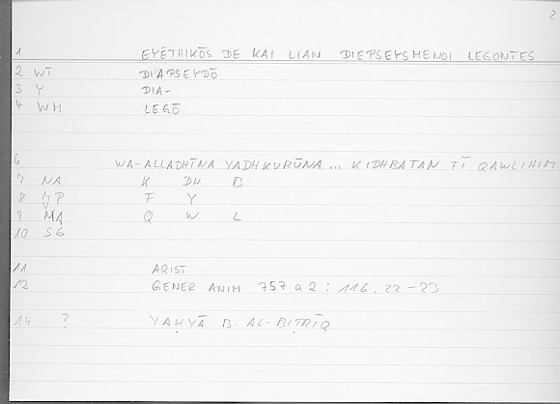 2
1 EYĒTHIKŌS DE KAI LIAN DIEPSEYSMENOI LEGONTES
2 WT DIAPSEYDŌ
3 Y DIA-
4 WM LEGŌ
6 WA-ALLADHĪNA YADHKURŪNA... KIDHBATAN FĪ QAWLIHIM
7 NA K DH B
8 P F Y
9 MA Q W L
10 SG
11 ARIST
12 GENER ANIM 757 a 2 : 116.22-23
14 ? YAḤYĀ B. AL-BIṬRĪQ